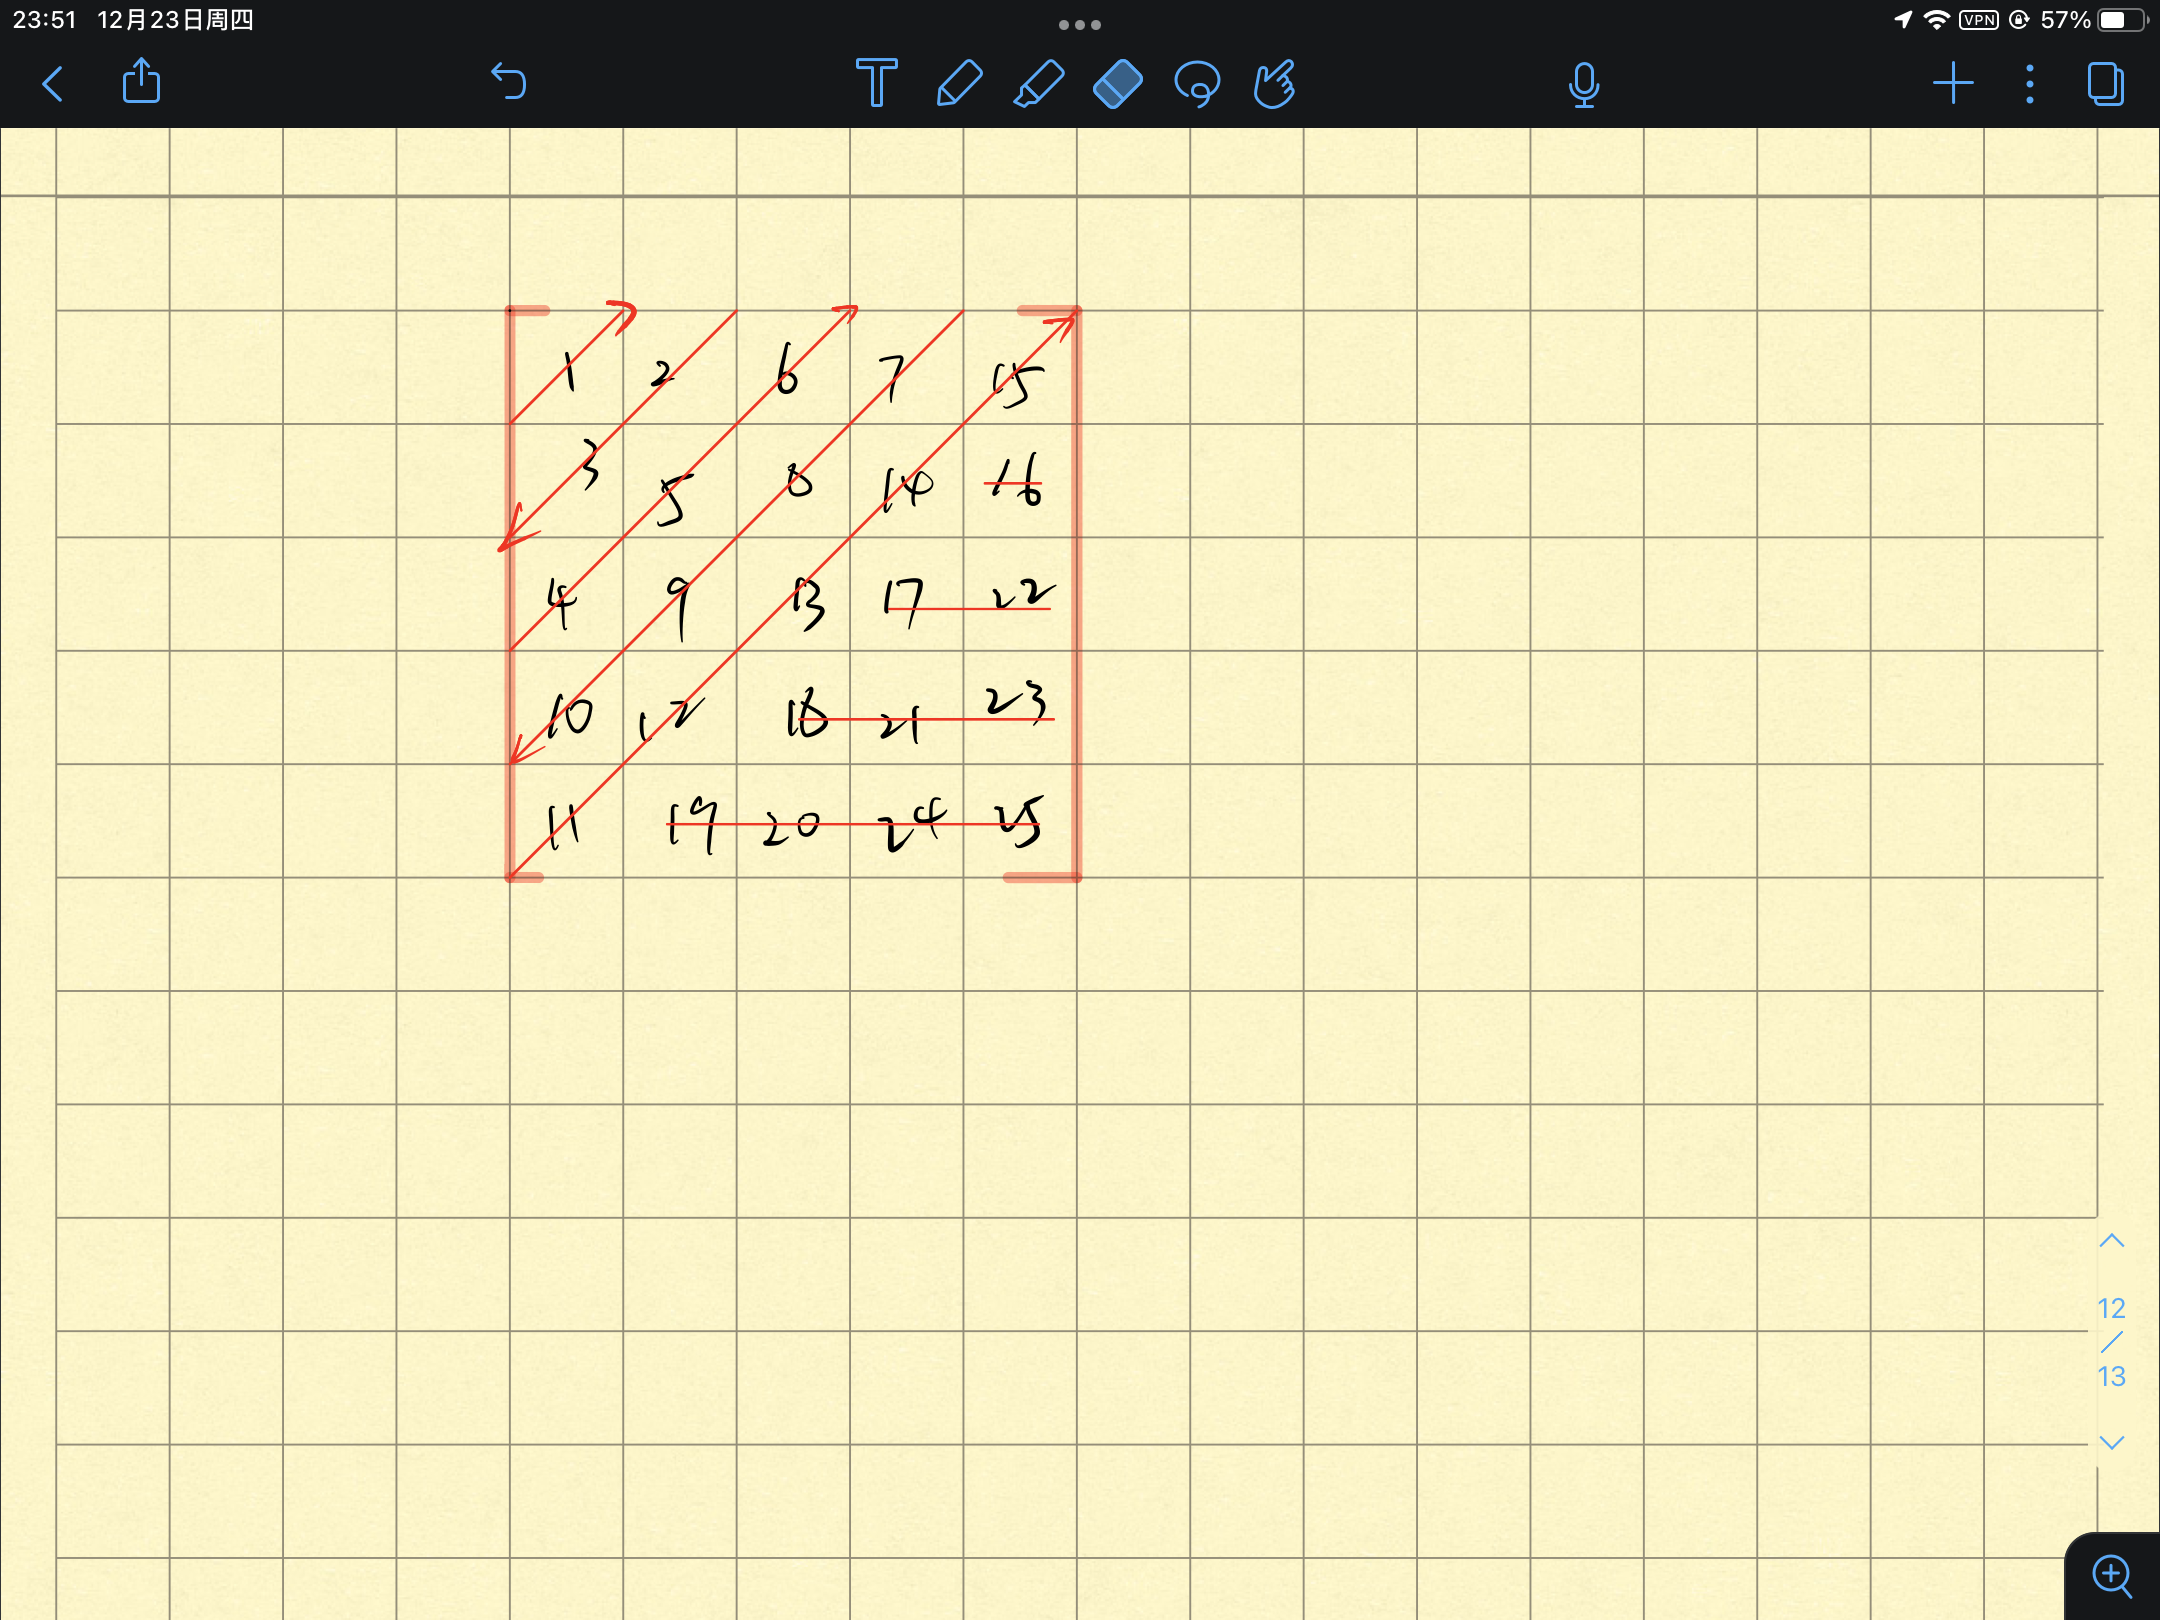 23:51 12月23日周四
VPN 57%
T
1 2 6 7 15
3 5 8 14 16
4 9 13 17 22
10 12 18 21 23
11 19 20 24 25
12
/
13